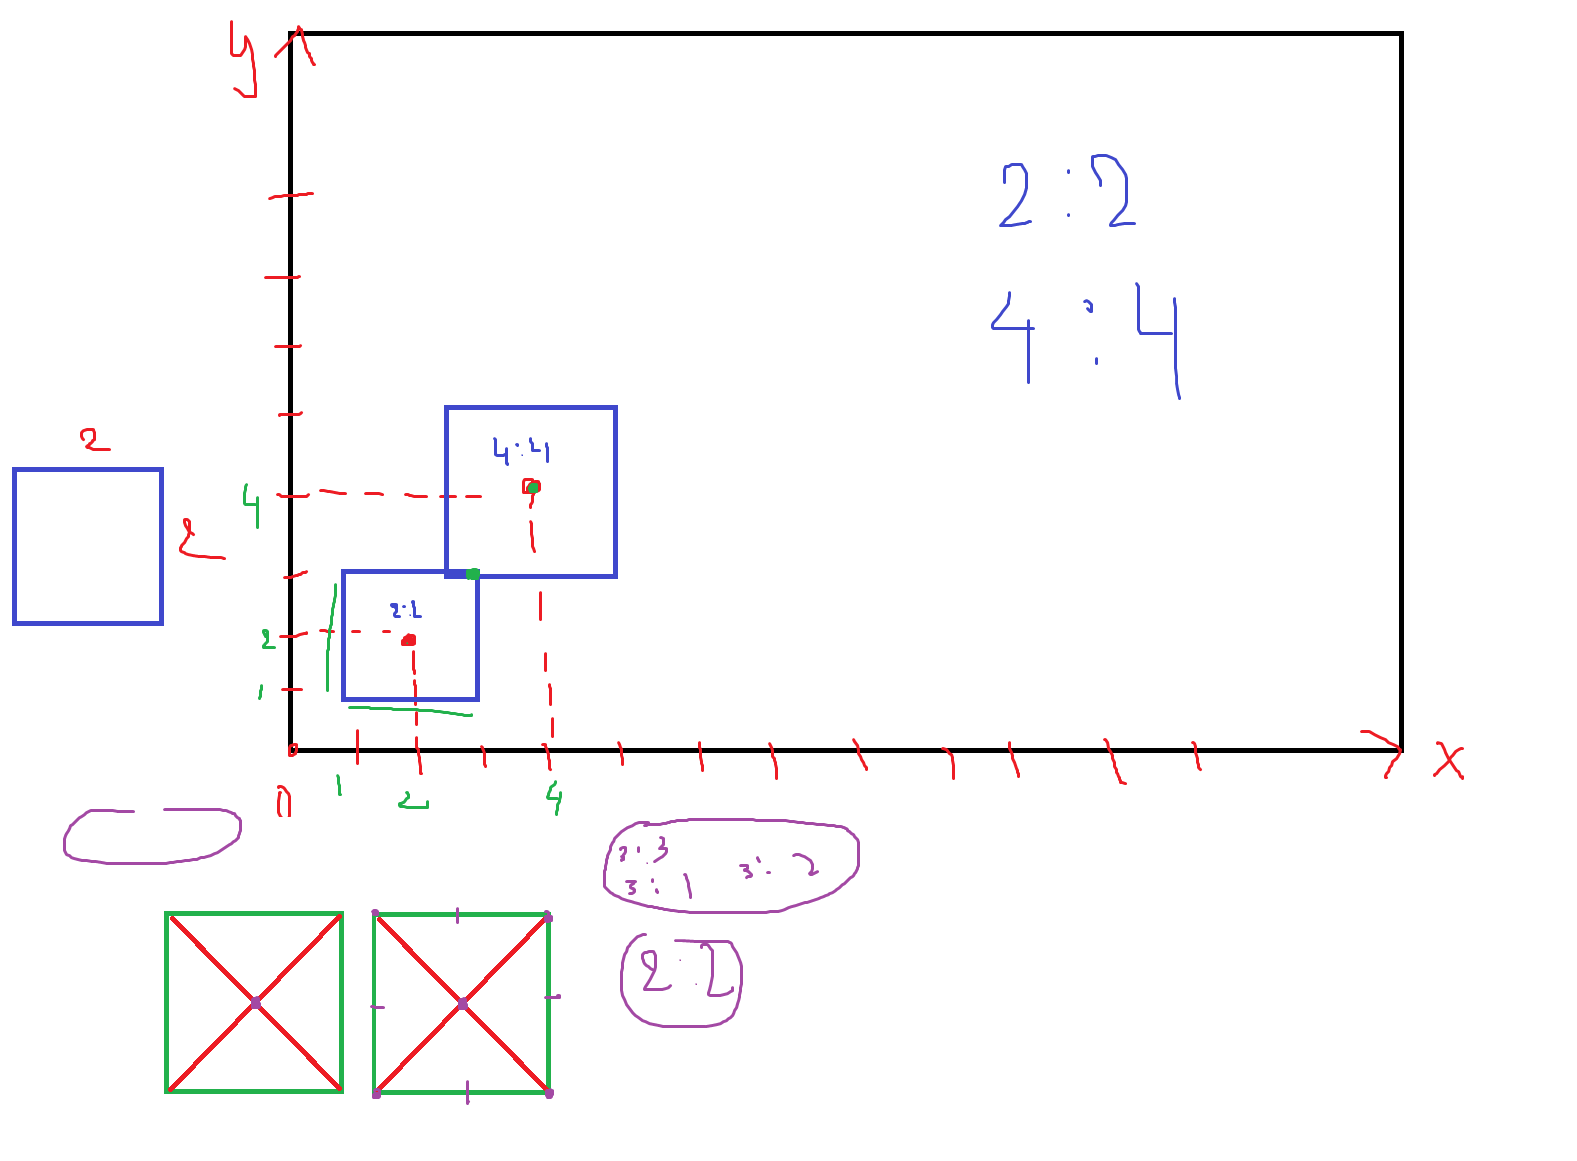 y
2 : 2
4 : 4
2
4 : 4
4
2
2:2
2
1
x
0
1
2
4
3 : 3
3 : 1
3 : 2
2 : 2